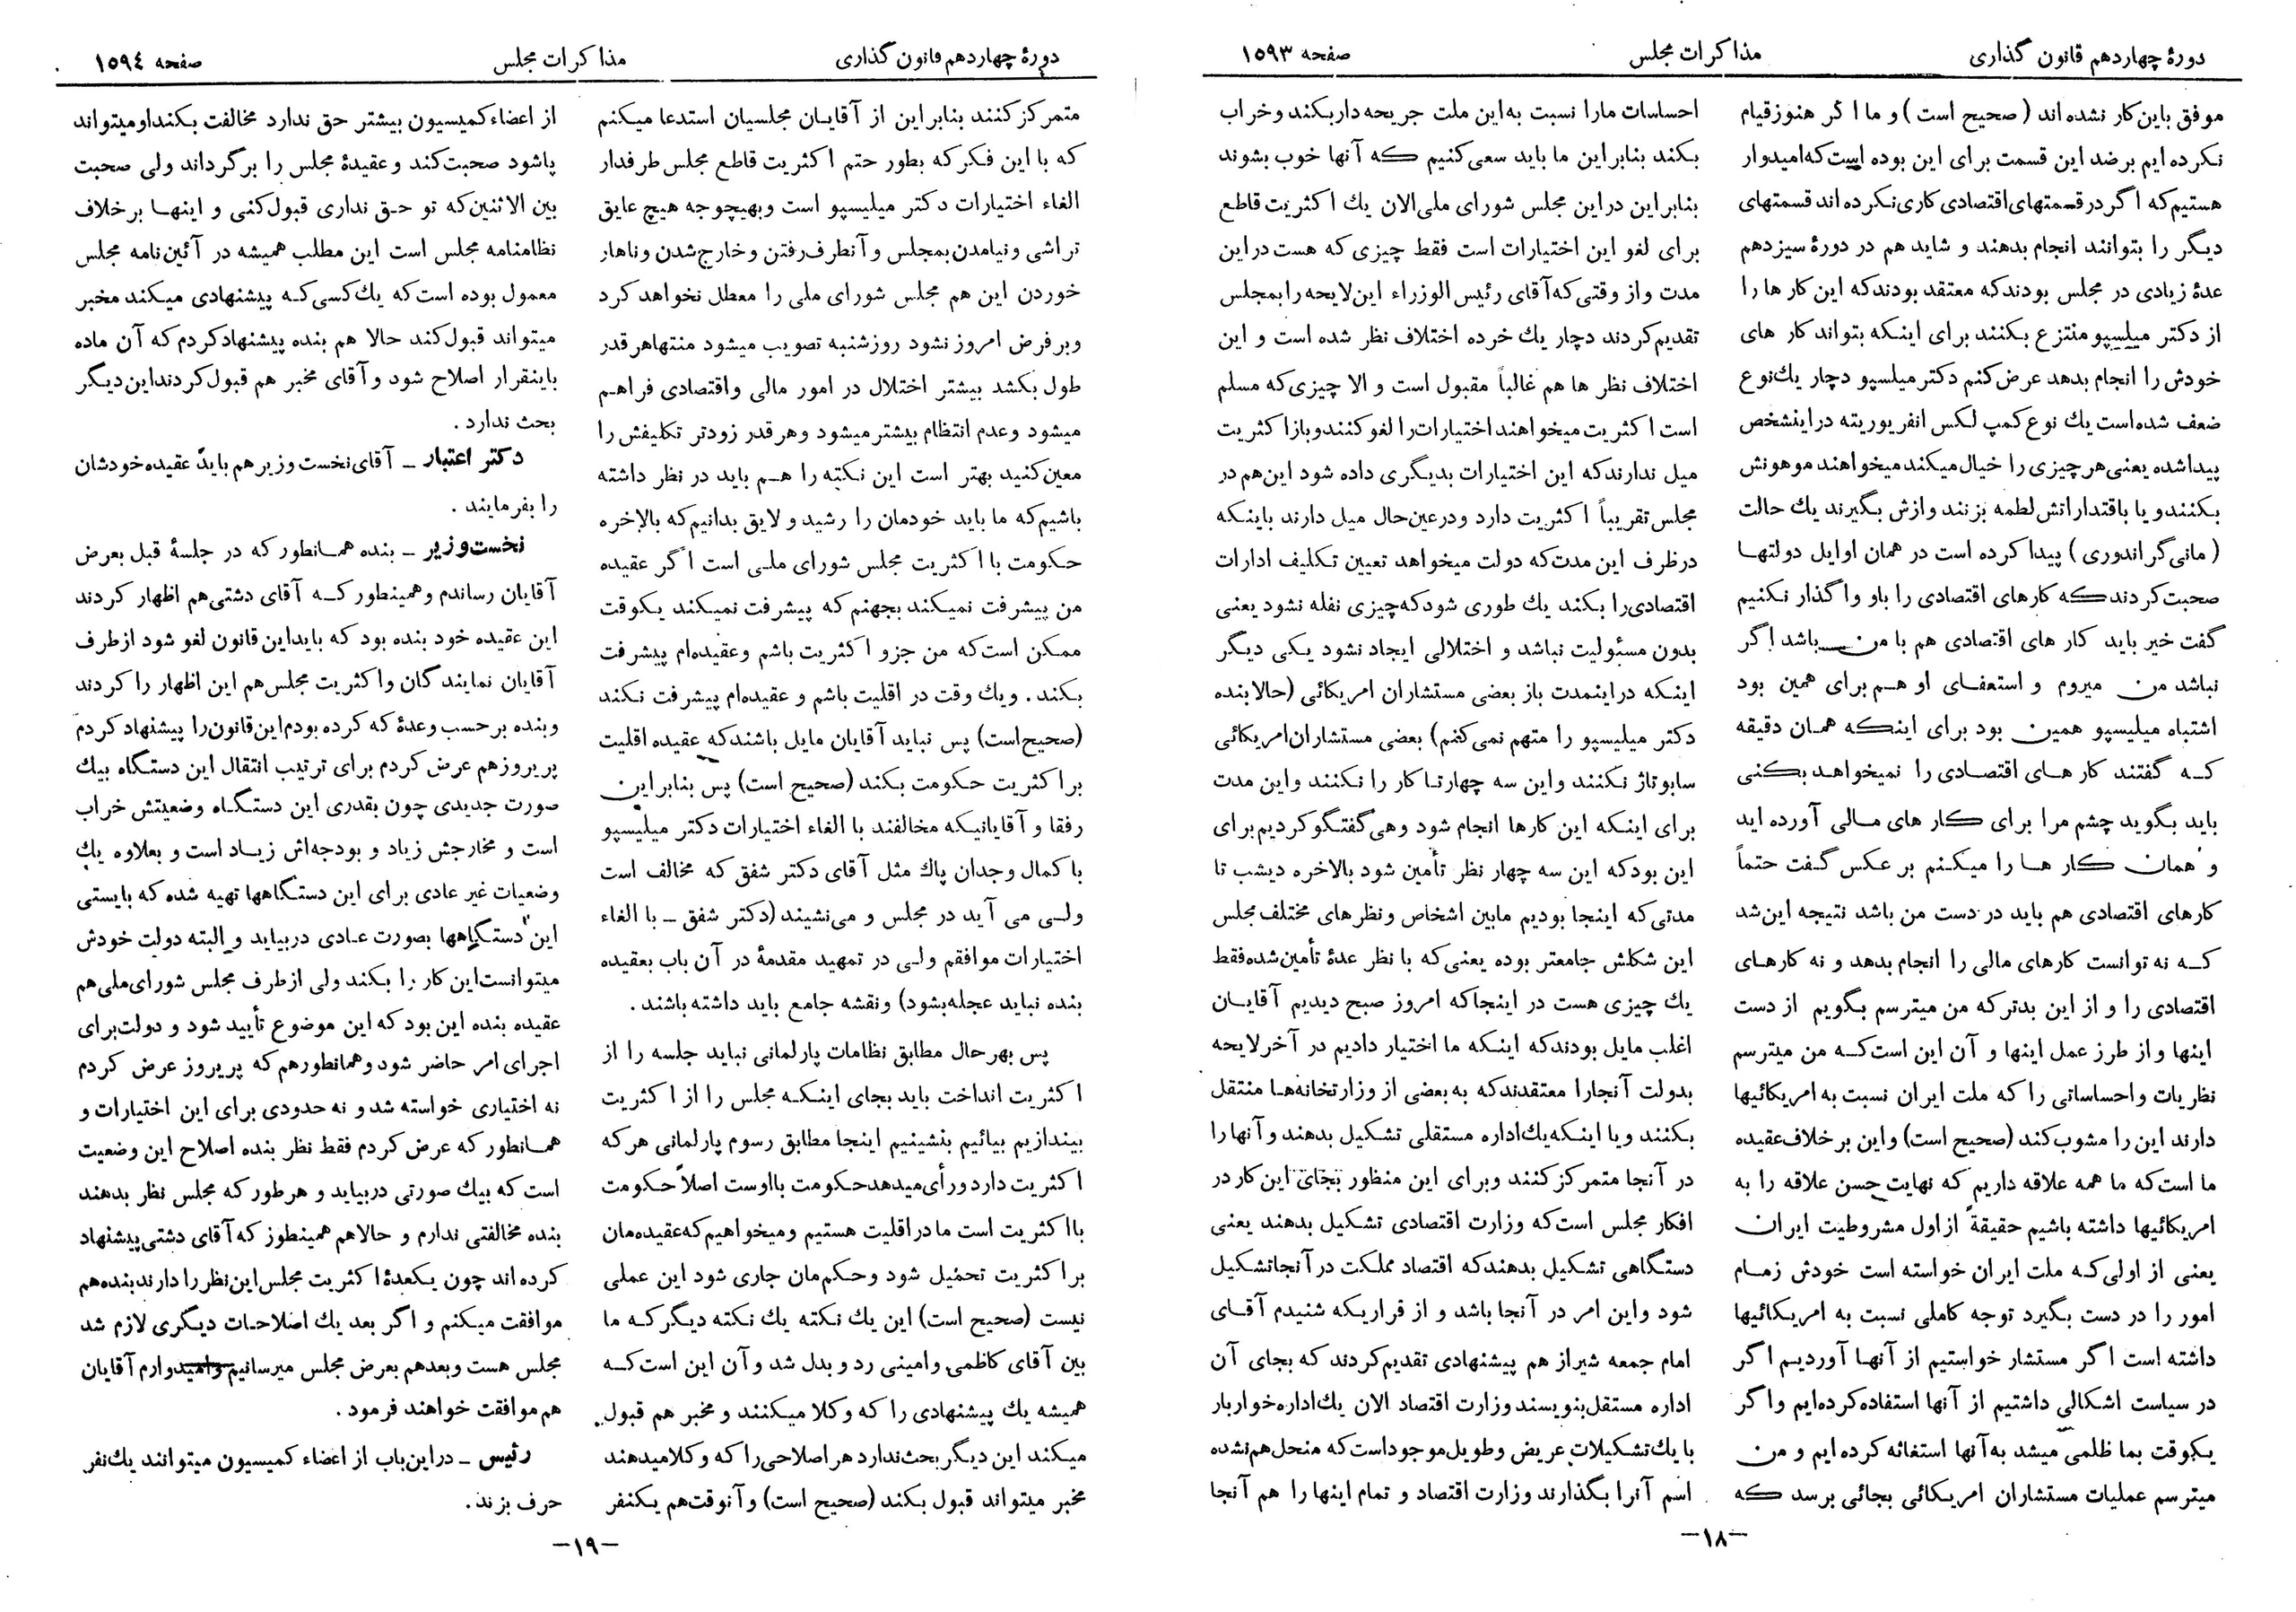 دورهٔ چهاردهم قانون گذاری
مذاکرات مجلس
صفحه ۱۵۹۳
موفق باین کار نشده اند (صحیح است) و ما اگر هنوز قیام
نکرده ایم برضد این قسمت برای این بوده است که امیدوار
هستیم که اگر در قسمتهای اقتصادی کاری نکرده اند قسمتهای
دیگر را بتوانند انجام بدهند و شاید هم در دورهٔ سیزدهم
عدهٔ زیادی در مجلس بودند که معتقد بودند که این کار ها را
از دکتر میلسپو منتزع بکنند برای اینکه بتواند کار های
خودش را انجام بدهد عرض کنم دکتر میلسپو دچار یك نوع
ضعف شده است یك نوع کمپ لکس انفریوریته در اینشخص
پیدا شده یعنی هر چیزی را خیال میکند میخواهند موهونش
بکنند و یا باقتداراتش لطمه بزنند و ازش بگیرند یك حالت
(مانی گراندوری) پیدا کرده است در همان اوایل دولتها
صحبت کردند که کارهای اقتصادی را باو واگذار نکنیم
گفت خیر باید کار های اقتصادی هم با من باشد اگر
نباشد من میروم و استعفای او هم برای همین بود
اشتباه میلیسپو همین بود برای اینکه همان دقیقه
که گفتند کار های اقتصادی را نمیخواهد بکنی
باید بگوید چشم مرا برای کار های مالی آورده اید
و همان کار ها را میکنم بر عکس گفت حتماً
کارهای اقتصادی هم باید در دست من باشد نتیجه این شد
که نه توانست کارهای مالی را انجام بدهد و نه کارهای
اقتصادی را و از این بدتر که من میترسم بگویم از دست
اینها و از طرز عمل اینها و آن این است که من میترسم
نظریات و احساساتی را که ملت ایران نسبت به امریکائیها
دارند این را مشوب کند (صحیح است) و این برخلاف عقیده
ما است که ما همه علاقه داریم که نهایت حسن علاقه را به
امریکائیها داشته باشیم حقیقةً از اول مشروطیت ایران
یعنی از اولی که ملت ایران خواسته است خودش زمام
امور را در دست بگیرد توجه کاملی نسبت به امریکائیها
داشته است اگر مستشار خواستیم از آنها آوردیم اگر
در سیاست اشکالی داشتیم از آنها استفاده کرده ایم و اگر
یکوقت بما ظلمی میشد به آنها استغاثه کرده ایم و من
میترسم عملیات مستشاران امریکائی بجائی برسد که
احساسات مارا نسبت به این ملت جریحه دار بکنند و خراب
بکند بنابراین ما باید سعی کنیم که آنها خوب بشوند
بنابراین در این مجلس شورای ملی الان یك اکثریت قاطع
برای لغو این اختیارات است فقط چیزی که هست در این
مدت و از وقتی که آقای رئیس الوزراء این لایحه را بمجلس
تقدیم کردند دچار یك خرده اختلاف نظر شده است و این
اختلاف نظر ها هم غالباً مقبول است و الا چیزی که مسلم
است اکثریت میخواهند اختیارات را لغو کنند و باز اکثریت
میل ندارند که این اختیارات بدیگری داده شود این هم در
مجلس تقریباً اکثریت دارد و در عین حال میل دارند باینکه
در ظرف این مدت که دولت میخواهد تعیین تکلیف ادارات
اقتصادی را بکند یك طوری شود که چیزی نفله نشود یعنی
بدون مسئولیت نباشد و اختلالی ایجاد نشود یکی دیگر
اینکه در اینمدت باز بعضی مستشاران امریکائی (حالا بنده
دکتر میلیسپو را متهم نمی کنم) بعضی مستشاران امریکائی
سابوتاژ نکنند و این سه چهار تا کار را نکنند و این مدت
برای اینکه این کارها انجام شود و هی گفتگو کردیم برای
این بود که این سه چهار نظر تأمین شود بالاخره دیشب تا
مدتی که اینجا بودیم مابین اشخاص و نظر های مختلف مجلس
این شکلش جامعتر بوده یعنی که با نظر عدهٔ تأمین شده فقط
یك چیزی هست در اینجا که امروز صبح دیدیم آقایان
اغلب مایل بودند که اینکه ما اختیار دادیم در آخر لایحه
بدولت آنجارا معتقدند که به بعضی از وزارتخانه ها منتقل
بکنند و یا اینکه یك اداره مستقلی تشکیل بدهند و آنها را
در آنجا متمرکز کنند و برای این منظور بجای این کار در
افکار مجلس است که وزارت اقتصادی تشکیل بدهند یعنی
دستگاهی تشکیل بدهند که اقتصاد مملکت در آنجا تشکیل
شود و این امر در آنجا باشد و از قراریکه شنیدم آقای
امام جمعه شیراز هم پیشنهادی تقدیم کردند که بجای آن
اداره مستقل بنویسند وزارت اقتصاد الان یك اداره خواربار
با یك تشکیلات عریض و طویل موجود است که منحل هم نشده
اسم آنرا بگذارند وزارت اقتصاد و تمام اینها را هم آنجا
-۱۸-
دورهٔ چهاردهم قانون گذاری
مذاکرات مجلس
صفحه ۱۵۹٤
متمرکز کنند بنابراین از آقایان مجلسیان استدعا میکنم
که با این فکر که بطور حتم اکثریت قاطع مجلس طرفدار
الغاء اختیارات دکتر میلیسپو است و بهیچوجه هیچ عایق
تراشی و نیامدن بمجلس و آنطرف رفتن و خارج شدن و ناهار
خوردن این هم مجلس شورای ملی را معطل نخواهد کرد
و بر فرض امروز نشود روز شنبه تصویب میشود منتها هر قدر
طول بکشد بیشتر اختلال در امور مالی و اقتصادی فراهم
میشود و عدم انتظام بیشتر میشود و هر قدر زودتر تکلیفش را
معین کنید بهتر است این نکته را هم باید در نظر داشته
باشیم که ما باید خودمان را رشید و لایق بدانیم که بالاخره
حکومت با اکثریت مجلس شورای ملی است اگر عقیده
من پیشرفت نمیکند بجهنم که پیشرفت نمیکند یکوقت
ممکن است که من جزو اکثریت باشم و عقیده ام پیشرفت
بکند. و یك وقت در اقلیت باشم و عقیده ام پیشرفت نکند
(صحیح است) پس نباید آقایان مایل باشند که عقیده اقلیت
بر اکثریت حکومت بکند (صحیح است) پس بنابراین
رفقا و آقایانیکه مخالفند با الغاء اختیارات دکتر میلیسپو
با کمال وجدان پاك مثل آقای دکتر شفق که مخالف است
ولی می آید در مجلس و می نشیند (دکتر شفق - با الغاء
اختیارات موافقم ولی در تمهید مقدمهٔ در آن باب بعقیده
بنده نباید عجله بشود) و نقشه جامع باید داشته باشند.
پس بهر حال مطابق نظامات پارلمانی نباید جلسه را از
اکثریت انداخت باید بجای اینکه مجلس را از اکثریت
بیندازیم بیائیم بنشینیم اینجا مطابق رسوم پارلمانی هر که
اکثریت دارد و رأی میدهد حکومت با اوست اصلاً حکومت
با اکثریت است ما در اقلیت هستیم و میخواهیم که عقیده مان
بر اکثریت تحمیل شود و حکم مان جاری شود این عملی
نیست (صحیح است) این یك نکته یك نکته دیگر که ما
بین آقای کاظمی و امینی رد و بدل شد و آن این است که
همیشه یك پیشنهادی را که وکلا میکنند و مخبر هم قبول
میکند این دیگر بحث ندارد هر اصلاحی را که وکلا میدهند
مخبر میتواند قبول بکند (صحیح است) و آنوقت هم یکنفر
از اعضاء کمیسیون بیشتر حق ندارد مخالفت بکند او میتواند
پاشود صحبت کند و عقیدهٔ مجلس را برگرداند ولی صحبت
بین الاثنین که تو حق نداری قبول کنی و اینها برخلاف
نظامنامه مجلس است این مطلب همیشه در آئین نامه مجلس
معمول بوده است که یك کسی که پیشنهادی میکند مخبر
میتواند قبول کند حالا هم بنده پیشنهاد کردم که آن ماده
باینقرار اصلاح شود و آقای مخبر هم قبول کردند این دیگر
بحث ندارد.
دکتر اعتبار - آقای نخست وزیر هم باید عقیده خودشان
را بفرمایند.
نخست وزیر - بنده همانطور که در جلسهٔ قبل بعرض
آقایان رساندم و همینطور که آقای دشتی هم اظهار کردند
این عقیده خود بنده بود که باید این قانون لغو شود از طرف
آقایان نمایندگان و اکثریت مجلس هم این اظهار را کردند
و بنده بر حسب وعدهٔ که کرده بودم این قانون را پیشنهاد کردم
پریروز هم عرض کردم برای ترتیب انتقال این دستگاه بیك
صورت جدیدی چون بقدری این دستگاه وضعیتش خراب
است و مخارجش زیاد و بودجه اش زیاد است و بعلاوه یك
وضعیات غیر عادی برای این دستگاهها تهیه شده که بایستی
این دستگاهها بصورت عادی دربیاید و البته دولت خودش
میتوانست این کار را بکند ولی از طرف مجلس شورای ملی هم
عقیده بنده این بود که این موضوع تأیید شود و دولت برای
اجرای امر حاضر شود و همانطور هم که پریروز عرض کردم
نه اختیاری خواسته شد و نه حدودی برای این اختیارات و
همانطور که عرض کردم فقط نظر بنده اصلاح این وضعیت
است که بیك صورتی دربیاید و هر طور که مجلس نظر بدهند
بنده مخالفتی ندارم و حالا هم همینطور که آقای دشتی پیشنهاد
کرده اند چون یکعدهٔ اکثریت مجلس این نظر را دارند بنده هم
موافقت میکنم و اگر بعد یك اصلاحات دیگری لازم شد
مجلس هست و بعد هم بعرض مجلس میرسانیم و امیدوارم آقایان
هم موافقت خواهند فرمود.
رئیس - در این باب از اعضاء کمیسیون میتوانند یك نفر
حرف بزند.
-۱۹-